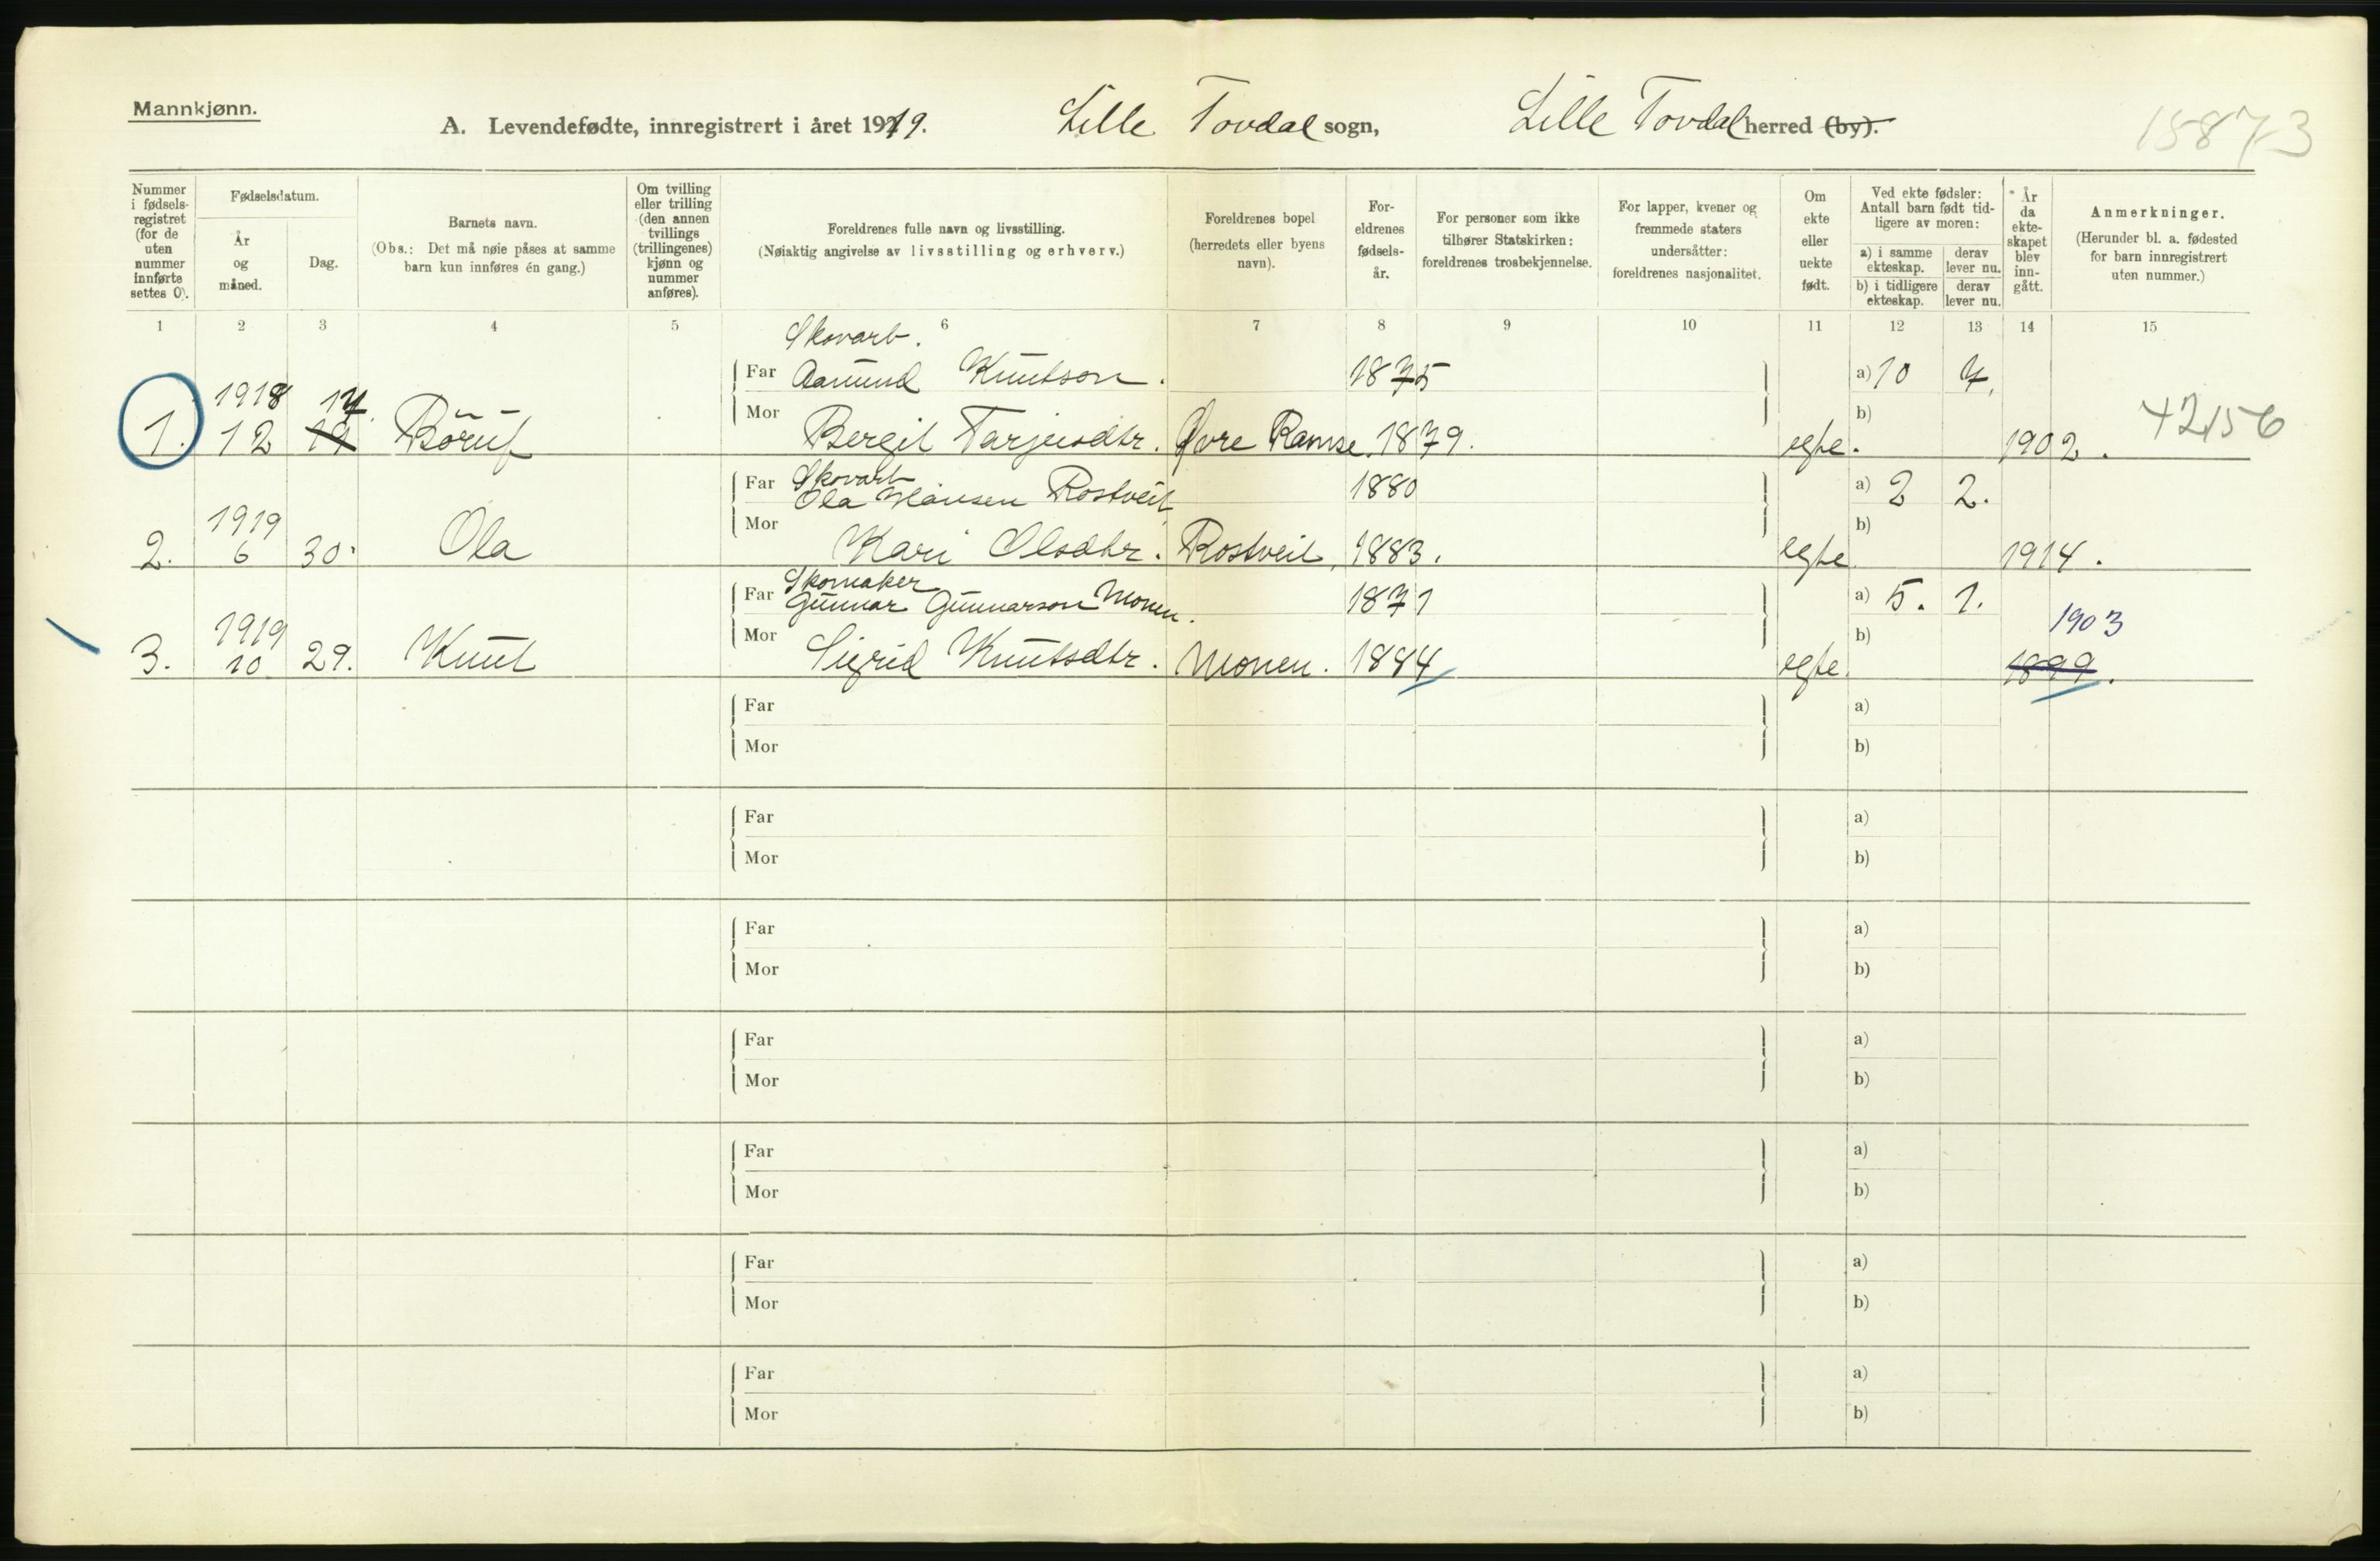 Mannkjønn.
A. Levendefødte, innregistrert i året 1919. Lille Tovdal sogn, Lille Tovdal herred (by).
15873
Nummer i fødsels-registret (for de uten nummer innførte settes 0).
Fødselsdatum.
År og måned.
Dag.
Barnets navn.
(Obs.: Det må nøie påses at samme barn kun innføres én gang.)
Om tvilling eller trilling (den annen tvillings (trillingenes) kjønn og nummer anføres).
Foreldrenes fulle navn og livsstilling.
(Nøiaktig angivelse av livsstilling og erhverv.)
Foreldrenes bopel (herredets eller byens navn).
For-eldrenes fødsels-år.
For personer som ikke tilhører Statskirken: foreldrenes trosbekjennelse.
For lapper, kvener og fremmede staters undersåtter: foreldrenes nasjonalitet.
Om ekte eller uekte født.
Ved ekte fødsler: Antall barn født tid-ligere av moren:
a) i samme ekteskap. derav lever nu.
b) i tidligere ekteskap. derav lever nu.
År da ekte-skapet blev inn-gått.
Anmerkninger.
(Herunder bl. a. fødested for barn innregistrert uten nummer.)
1 2 3 4 5 6 7 8 9 10 11 12 13 14 15
Skovarb.
Far Aamund Knutson. 1875 a) 10 7.
1918 17.
Mor b) 42156
1. 12 19 Børuf Bergit Tarjeisdtr. Øvre Ramse 1879. egte. 1902.
Skovarb
Far Ola Hansen Rostveit 1880 a) 2 2.
1919
Mor b)
2. 6 30. Ola Kari Olsdtr. Rostveit, 1883. egte 1914.
Skomaker
Far Gunnar Gunnarson Monen. 1871 a) 5. 1.
1919
Mor b) 1903
3. 10 29. Knut Sigrid Knutsdtr. Monen. 1884 egte. 1899.
Far a)
Mor b)
Far a)
Mor b)
Far a)
Mor b)
Far a)
Mor b)
Far a)
Mor b)
Far a)
Mor b)
Far a)
Mor b)